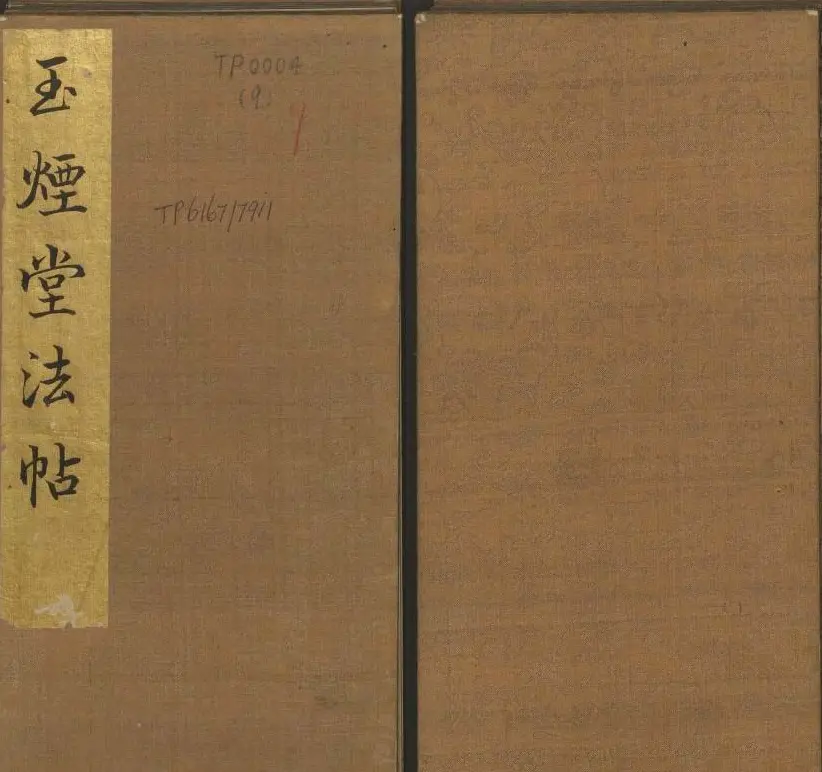 玉煙堂法帖
TP0004
(9)
9
TP6167/7911